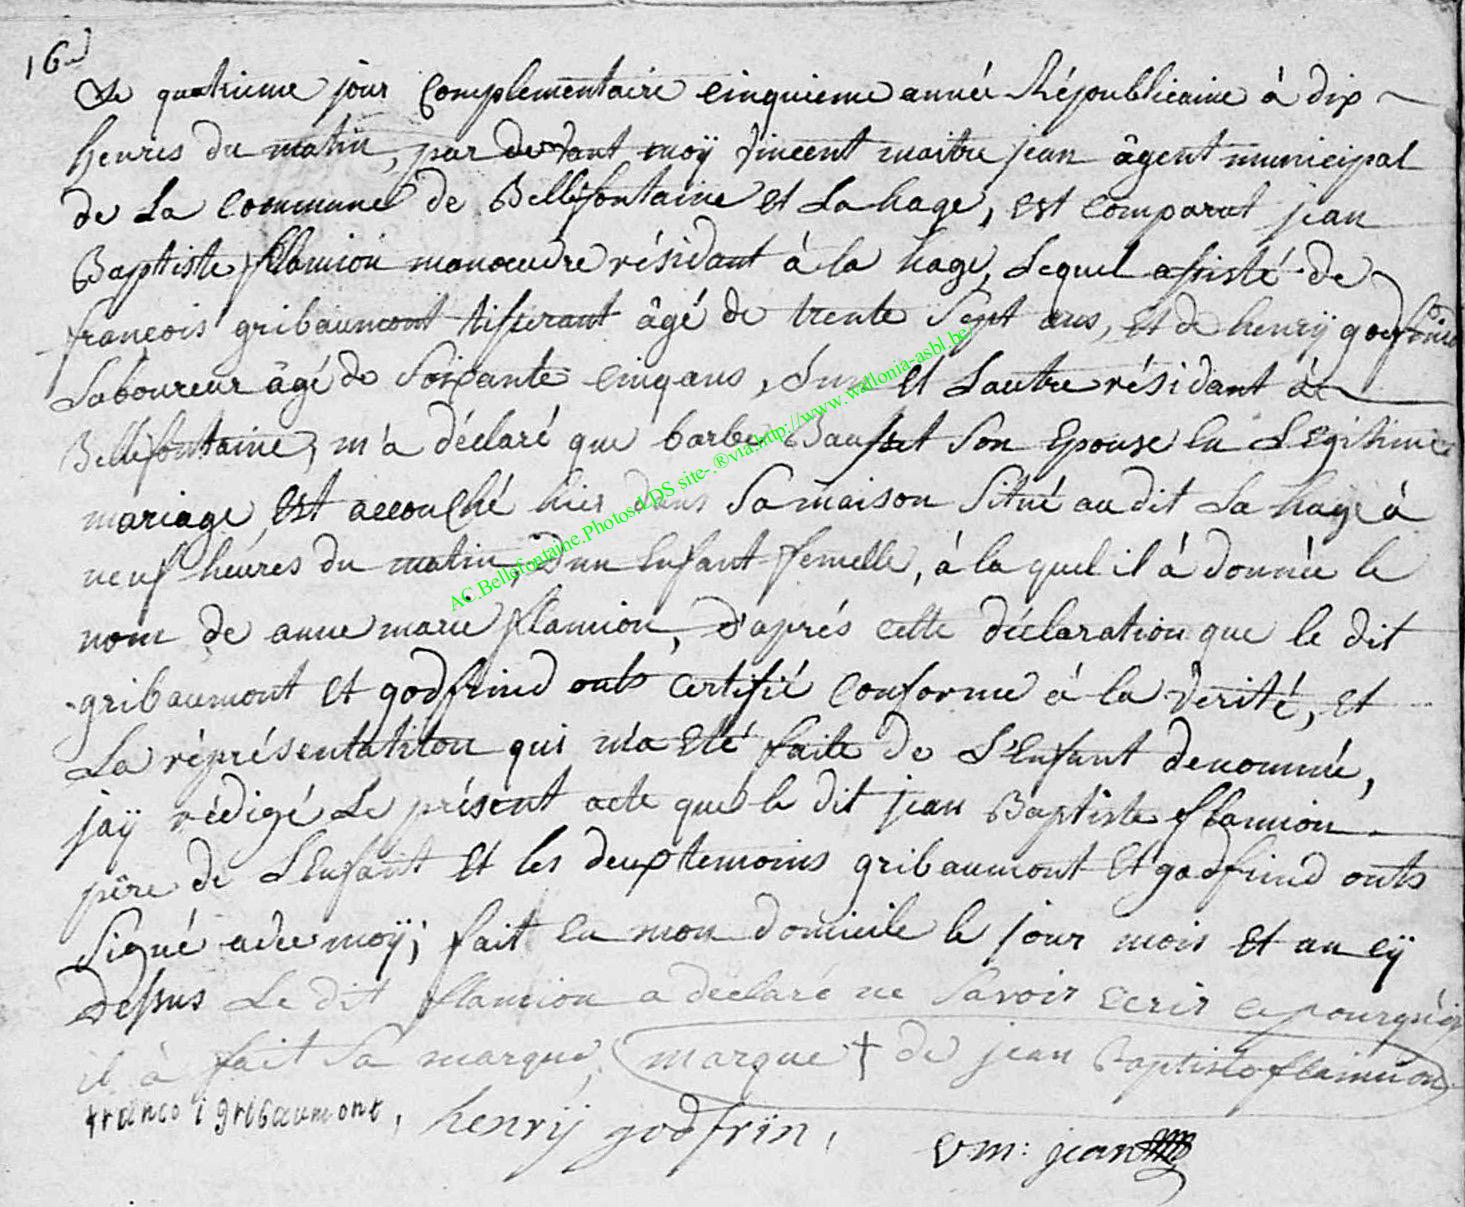 16
Le quatrieme jour Complementaire cinquieme année Républicaine à dix
heures du matin, par devant moÿ Vincent maitre jean âgent municipal
de La Commune de Bellefontaine et La hage, est comparut jean
Baptiste flamion manoeudre résidant à la hage, Lequel assisté de
francois gribaumont tisserant âgé de trente Sept ans, et de henrÿ godfrind
Laboureur âgé de Soixante cinq ans, L'un et L'autre résidant à
Bellefontaine, m'a déclaré que barbe son Epouse en Legitime
mariage, est accouché hier dans Sa maison Situé au dit La hage à
neuf heures du matin D'un Enfant femelle, à la quel il à donnée le
nom de anne marie flamion, d'aprés cette déclaration que le dit
gribaumont et godfrind onts certifié conforme à la vérité, et
La réprésentatiton qui m'a eté faite de L'Enfant denommée,
jaÿ rédigé Le présent acte que le dit jean Baptiste flamion
pére de L'Enfant et les deux temoins gribaumont et godfrind onts
Signé avec moÿ; fait en mon domicile le jour mois et an cÿ
dessus Le dit flamion a déclaré ne Savoir ecrir
il à fait Sa marque, marque † de jean Baptiste flamion
francoi gribaumont, henrÿ godfrin,
vm: jean
AC.Bellefontaine.Photos.LDS site-.®via.http://www.wallonia-asbl.be/